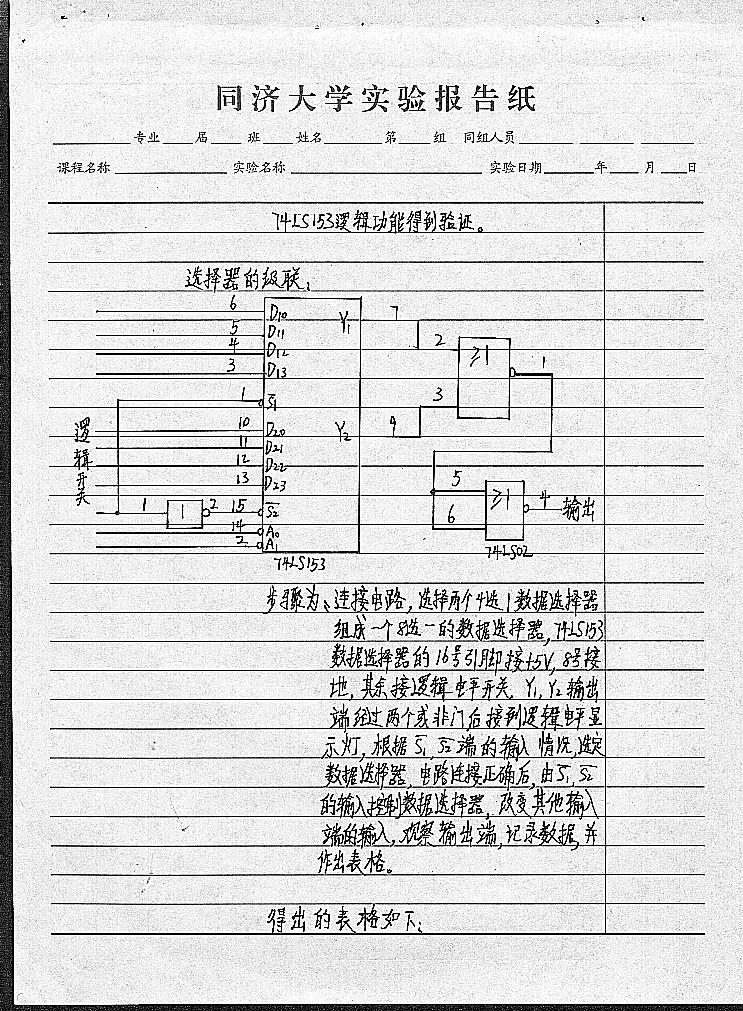 同济大学实验报告纸
专业 届 班 姓名 第 组 同组人员
课程名称 实验名称 实验日期 年 月 日
74LS153逻辑功能得到验证。
选择器的级联:
6 D10 Y1 7
5 D11
4 D12 2 ≥1 1
3 D13
1 S̅1 3
10 D20 Y2 9
11 D21
12 D22
13 D23 5
逻辑开关 1 1 2 15 S̅2 ≥1 4 输出
14 A0 6
2 A1
74LS153 74LS02
步骤为:连接电路,选择两个4选1数据选择器
组成一个8选一的数据选择器,74LS153
数据选择器的16号引脚接+5V,8号接
地,其余接逻辑电平开关. Y1, Y2输出
端经过两个或非门后接到逻辑电平显
示灯,根据S̅1, S̅2端的输入情况,选定
数据选择器,电路连接正确后,由S̅1, S̅2
的输入控制数据选择器,改变其他输入
端的输入,观察输出端,记录数据,并
作出表格。
得出的表格如下: